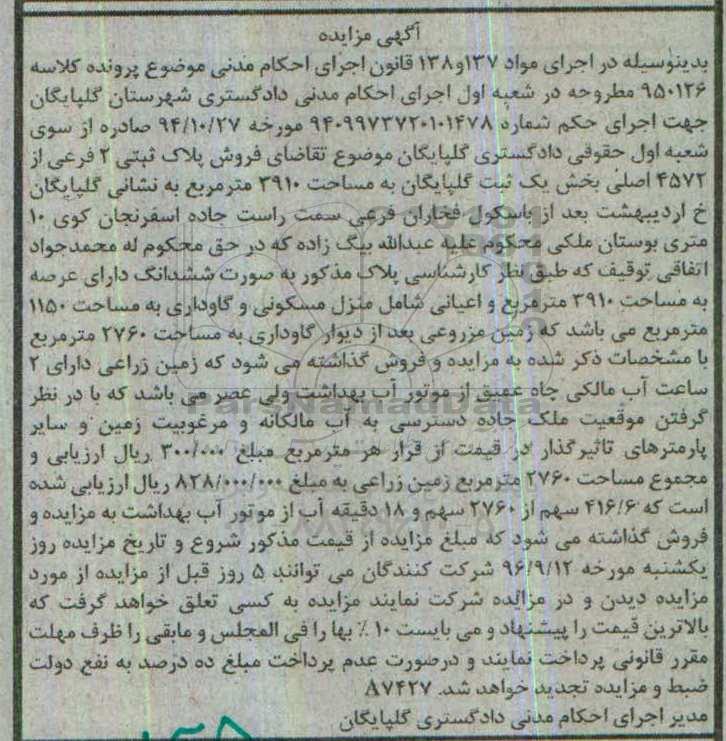 آگهی مزایده
بدینوسیله در اجرای مواد ۱۳۷و۱۳۸ قانون اجرای احکام مدنی موضوع پرونده کلاسه
۹۵۰۱۲۶ مطروحه در شعبه اول اجرای احکام مدنی دادگستری شهرستان گلپایگان
جهت اجرای حکم شماره ۹۴۰۹۹۷۳۷۲۰۱۰۱۴۷۸ مورخه ۹۴/۱۰/۲۷ صادره از سوی
شعبه اول حقوقی دادگستری گلپایگان موضوع تقاضای فروش پلاک ثبتی ۲ فرعی از
۴۵۷۲ اصلی بخش یک ثبت گلپایگان به مساحت ۳۹۱۰ مترمربع به نشانی گلپایگان
خ اردیبهشت بعد از باسکول فخاران فرعی سمت راست جاده اسفرنجان کوی ۱۰
متری بوستان ملکی محکوم علیه عبدالله بیگ زاده که در حق محکوم له محمدجواد
اتفاقی توقیف که طبق نظر کارشناسی پلاک مذکور به صورت ششدانگ دارای عرصه
به مساحت ۳۹۱۰ مترمربع و اعیانی شامل منزل مسکونی و گاوداری به مساحت ۱۱۵۰
مترمربع می باشد که زمین مزروعی بعد از دیوار گاوداری به مساحت ۲۷۶۰ مترمربع
با مشخصات ذکر شده به مزایده و فروش گذاشته می شود که زمین زراعی دارای ۲
ساعت آب مالکی چاه عمیق از موتور آب بهداشت ولی عصر می باشد که با در نظر
گرفتن موقعیت ملک جاده دسترسی به آب مالکانه و مرغوبیت زمین و سایر
پارمترهای تاثیرگذار در قیمت از قرار هر مترمربع مبلغ ۳۰۰/۰۰۰ ریال ارزیابی و
مجموع مساحت ۲۷۶۰ مترمربع زمین زراعی به مبلغ ۸۲۸/۰۰۰/۰۰۰ ریال ارزیابی شده
است که ۴۱۶/۶ سهم از ۲۷۶۰ سهم و ۱۸ دقیقه آب از موتور آب بهداشت به مزایده و
فروش گذاشته می شود که مبلغ مزایده از قیمت مذکور شروع و تاریخ مزایده روز
یکشنبه مورخه ۹۶/۹/۱۲ شرکت کنندگان می توانند ۵ روز قبل از مزایده از مورد
مزایده دیدن و در مزایده شرکت نمایند مزایده به کسی تعلق خواهد گرفت که
بالاترین قیمت را پیشنهاد و می بایست ۱۰ ٪ بها را فی المجلس و مابقی را ظرف مهلت
مقرر قانونی پرداخت نمایند و درصورت عدم پرداخت مبلغ ده درصد به نفع دولت
ضبط و مزایده تجدید خواهد شد. ۸۷۴۲۷
مدیر اجرای احکام مدنی دادگستری گلپایگان
ParsNamadData